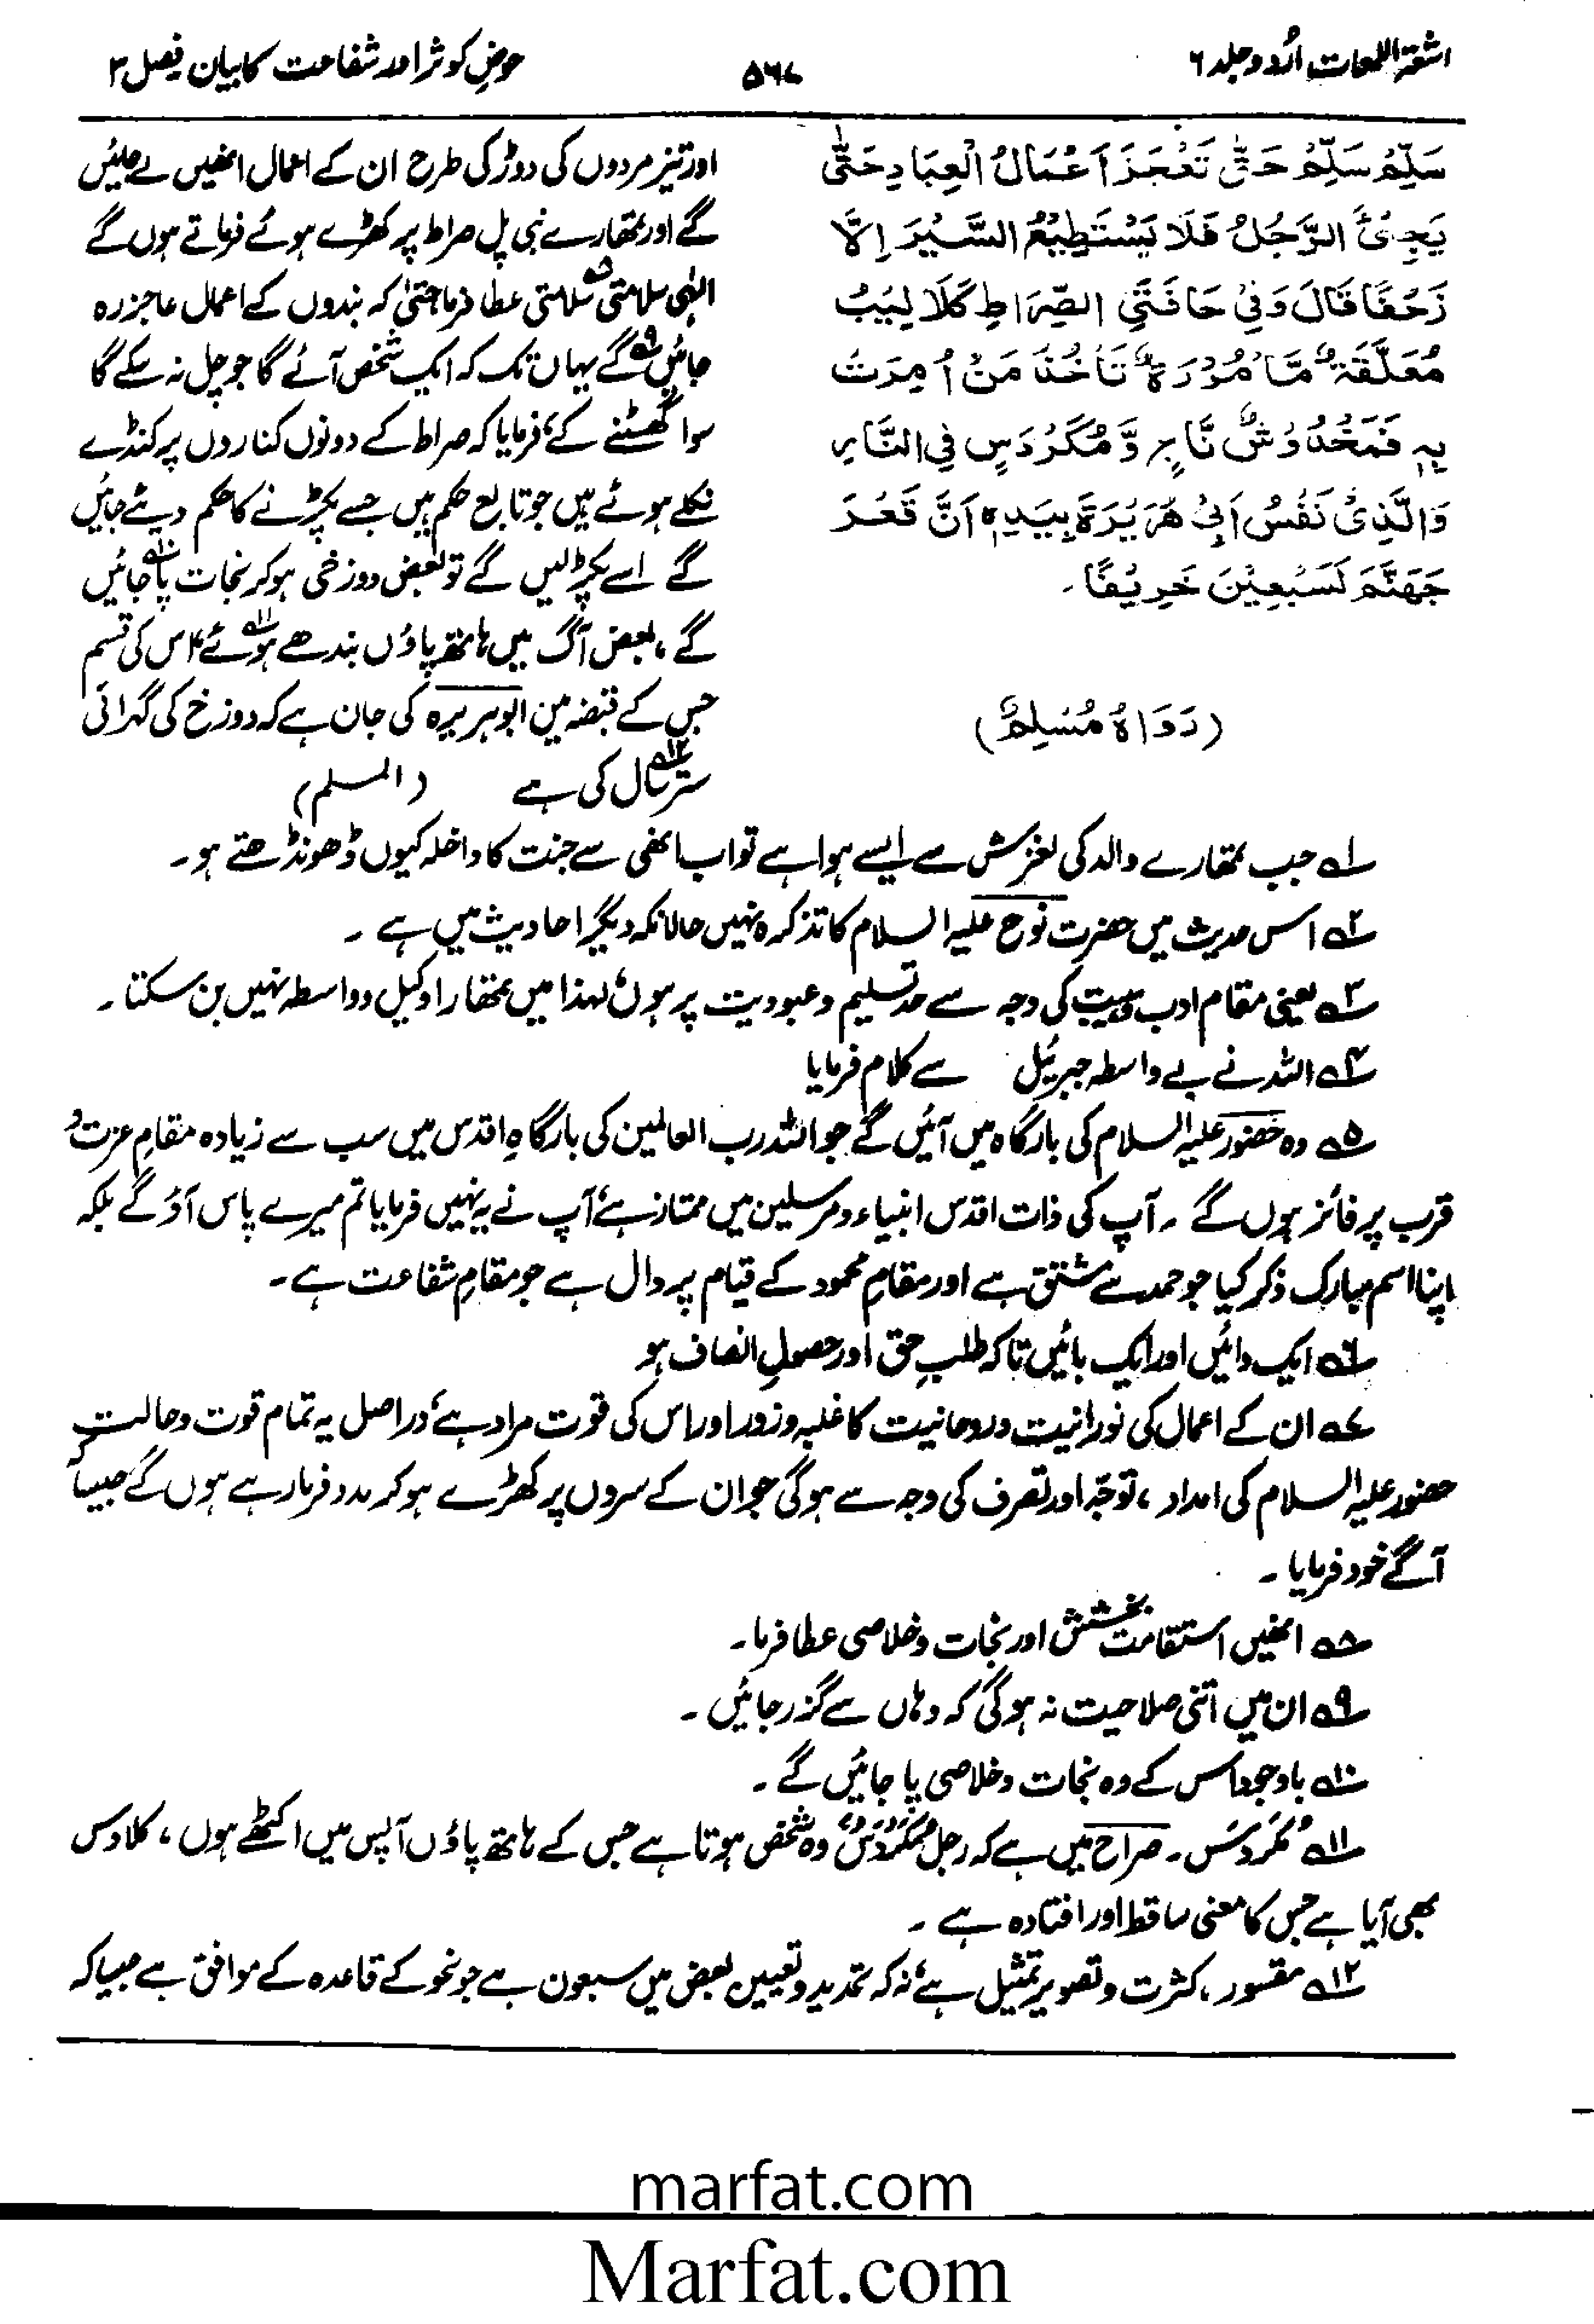 اشعۃ اللمعات اُردو جلد ۶
۵۶۷
حوضِ کوثر اور شفاعت کا بیان فصل ۳
سَلِّمْ سَلِّمْ حَتّٰی تَعْجَزَ اَعْمَالُ الْعِبَادِ حَتّٰی
یَجِیْئَ الرَّجُلُ فَلَا یَسْتَطِیْعُ السَّیْرَ اِلَّا
زَحْفًا قَالَ وَفِیْ حَافَتَیِ الصِّرَاطِ کَلَالِیْبُ
مُعَلَّقَۃٌ مَّاْمُوْرَۃٌ تَاْخُذُ مَنْ اُمِرَتْ
بِہٖ فَمَخْدُوْشٌ نَّاجٍ وَّ مُکَرْدَسٍ فِی النَّارِ
وَالَّذِیْ نَفْسُ اَبِیْ ھُرَیْرَۃَ بِیَدِہٖ اَنَّ قَعْرَ
جَھَنَّمَ لَسَبْعِیْنَ خَرِیْفًا۔
(رَوَاہُ مُسْلِمٌ)
اور تیز مردوں کی دوڑ کی طرح ان کے اعمال انھیں لے چلیں
گے اور تمھارے نبی پل صراط پر کھڑے ہوئے فرماتے ہوں گے
الٰہی سلامتی سلامتی عطا فرما حتیٰ کہ بندوں کے اعمال عاجز رہ
جائیں گے یہاں تک کہ ایک شخص آئے گا جو چل نہ سکے گا
سوا گھسٹنے کے، فرمایا کہ صراط کے دونوں کناروں پر کنڈے
نکلے ہوئے ہیں جو تابع حکم ہیں جسے پکڑنے کا حکم دیئے جائیں
گے اسے پکڑ لیں گے تو بعض دوزخی ہو کر نجات پا جائیں
گے، بعض آگ میں ہاتھ پاؤں بندھے ہوئے، اس کی قسم
جس کے قبضہ میں ابو ہریرہ کی جان ہے کہ دوزخ کی گہرائی
ستر سال کی ہے (المسلم)
۱ جب تمھارے والد کی لغزش سے ایسے ہوا ہے تو اب انھی سے جنت کا داخلہ کیوں ڈھونڈھتے ہو۔
۲ اس حدیث میں حضرت نوح علیہ السلام کا تذکرہ نہیں حالانکہ دیگر احادیث میں ہے ۔
۳ یعنی مقام ادب وہیبت کی وجہ سے حد تسلیم و عبودیت پر ہوں، لہذا میں تمھارا وکیل و واسطہ نہیں بن سکتا۔
۴ اللہ نے بے واسطہ جبرئیل سے کلام فرمایا
۵ وہ حضور علیہ السلام کی بارگاہ میں آئیں گے جو اللہ رب العالمین کی بارگاہِ اقدس میں سب سے زیادہ مقامِ عزت و
قرب پر فائز ہوں گے ۔ آپ کی ذات اقدس انبیاء و مرسلین میں ممتاز ہے، آپ نے یہ نہیں فرمایا تم میرے پاس آؤ گے بلکہ
اپنا اسم مبارک ذکر کیا جو حمد سے مشتق ہے اور مقامِ محمود کے قیام پر دال ہے جو مقامِ شفاعت ہے۔
۶ ایک دائیں اور ایک بائیں تاکہ طلبِ حق اور حصولِ انصاف ہو
۷ ان کے اعمال کی نورانیت و روحانیت کا غلبہ و زور اور اس کی قوت مراد ہے، دراصل یہ تمام قوت و حالت
حضور علیہ السلام کی امداد، توجّہ اور تصرف کی وجہ سے ہوگی جو ان کے سروں پر کھڑے ہو کر مدد فرما رہے ہوں گے جیسا کہ
آگے خود فرمایا ۔
۸ انھیں استقامت بخشش اور نجات و خلاصی عطا فرما۔
۹ ان میں اتنی صلاحیت نہ ہوگی کہ وہاں سے گزر جائیں ۔
۱۰ باوجود اس کے وہ نجات و خلاصی پا جائیں گے ۔
۱۱ مُکَرْدَس۔ صراح میں ہے کہ رجل مُکَرْدَسٌ وہ شخص ہوتا ہے جس کے ہاتھ پاؤں آپس میں اکٹھے ہوں، کلاوس
بھی آیا ہے جس کا معنی ساقط اور افتادہ ہے ۔
۱۲ مقسور، کثرت و تصویر تمثیل ہے، نہ کہ تحدید و تعیین بعض میں سبعون ہے جو نحو کے قاعدہ کے موافق ہے جیسا کہ
marfat.com
Marfat.com